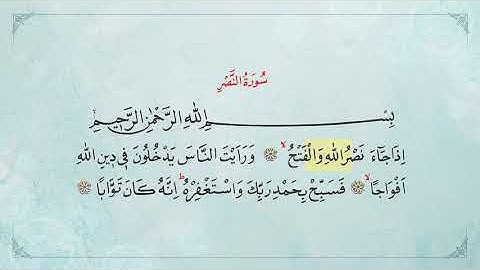 سُورَةُ النَّصْرِ
بِسْمِ اللهِ الرَّحْمٰنِ الرَّحٖيمِ
اِذَا جَٓاءَ نَصْرُ اللهِ وَالْفَتْحُۙ ۞ وَرَاَيْتَ النَّاسَ يَدْخُلُونَ فٖي دٖينِ اللهِ
اَفْوَاجًاۙ ۞ فَسَبِّحْ بِحَمْدِ رَبِّكَ وَاسْتَغْفِرْهُؕ اِنَّهُ كَانَ تَوَّابًا ۞